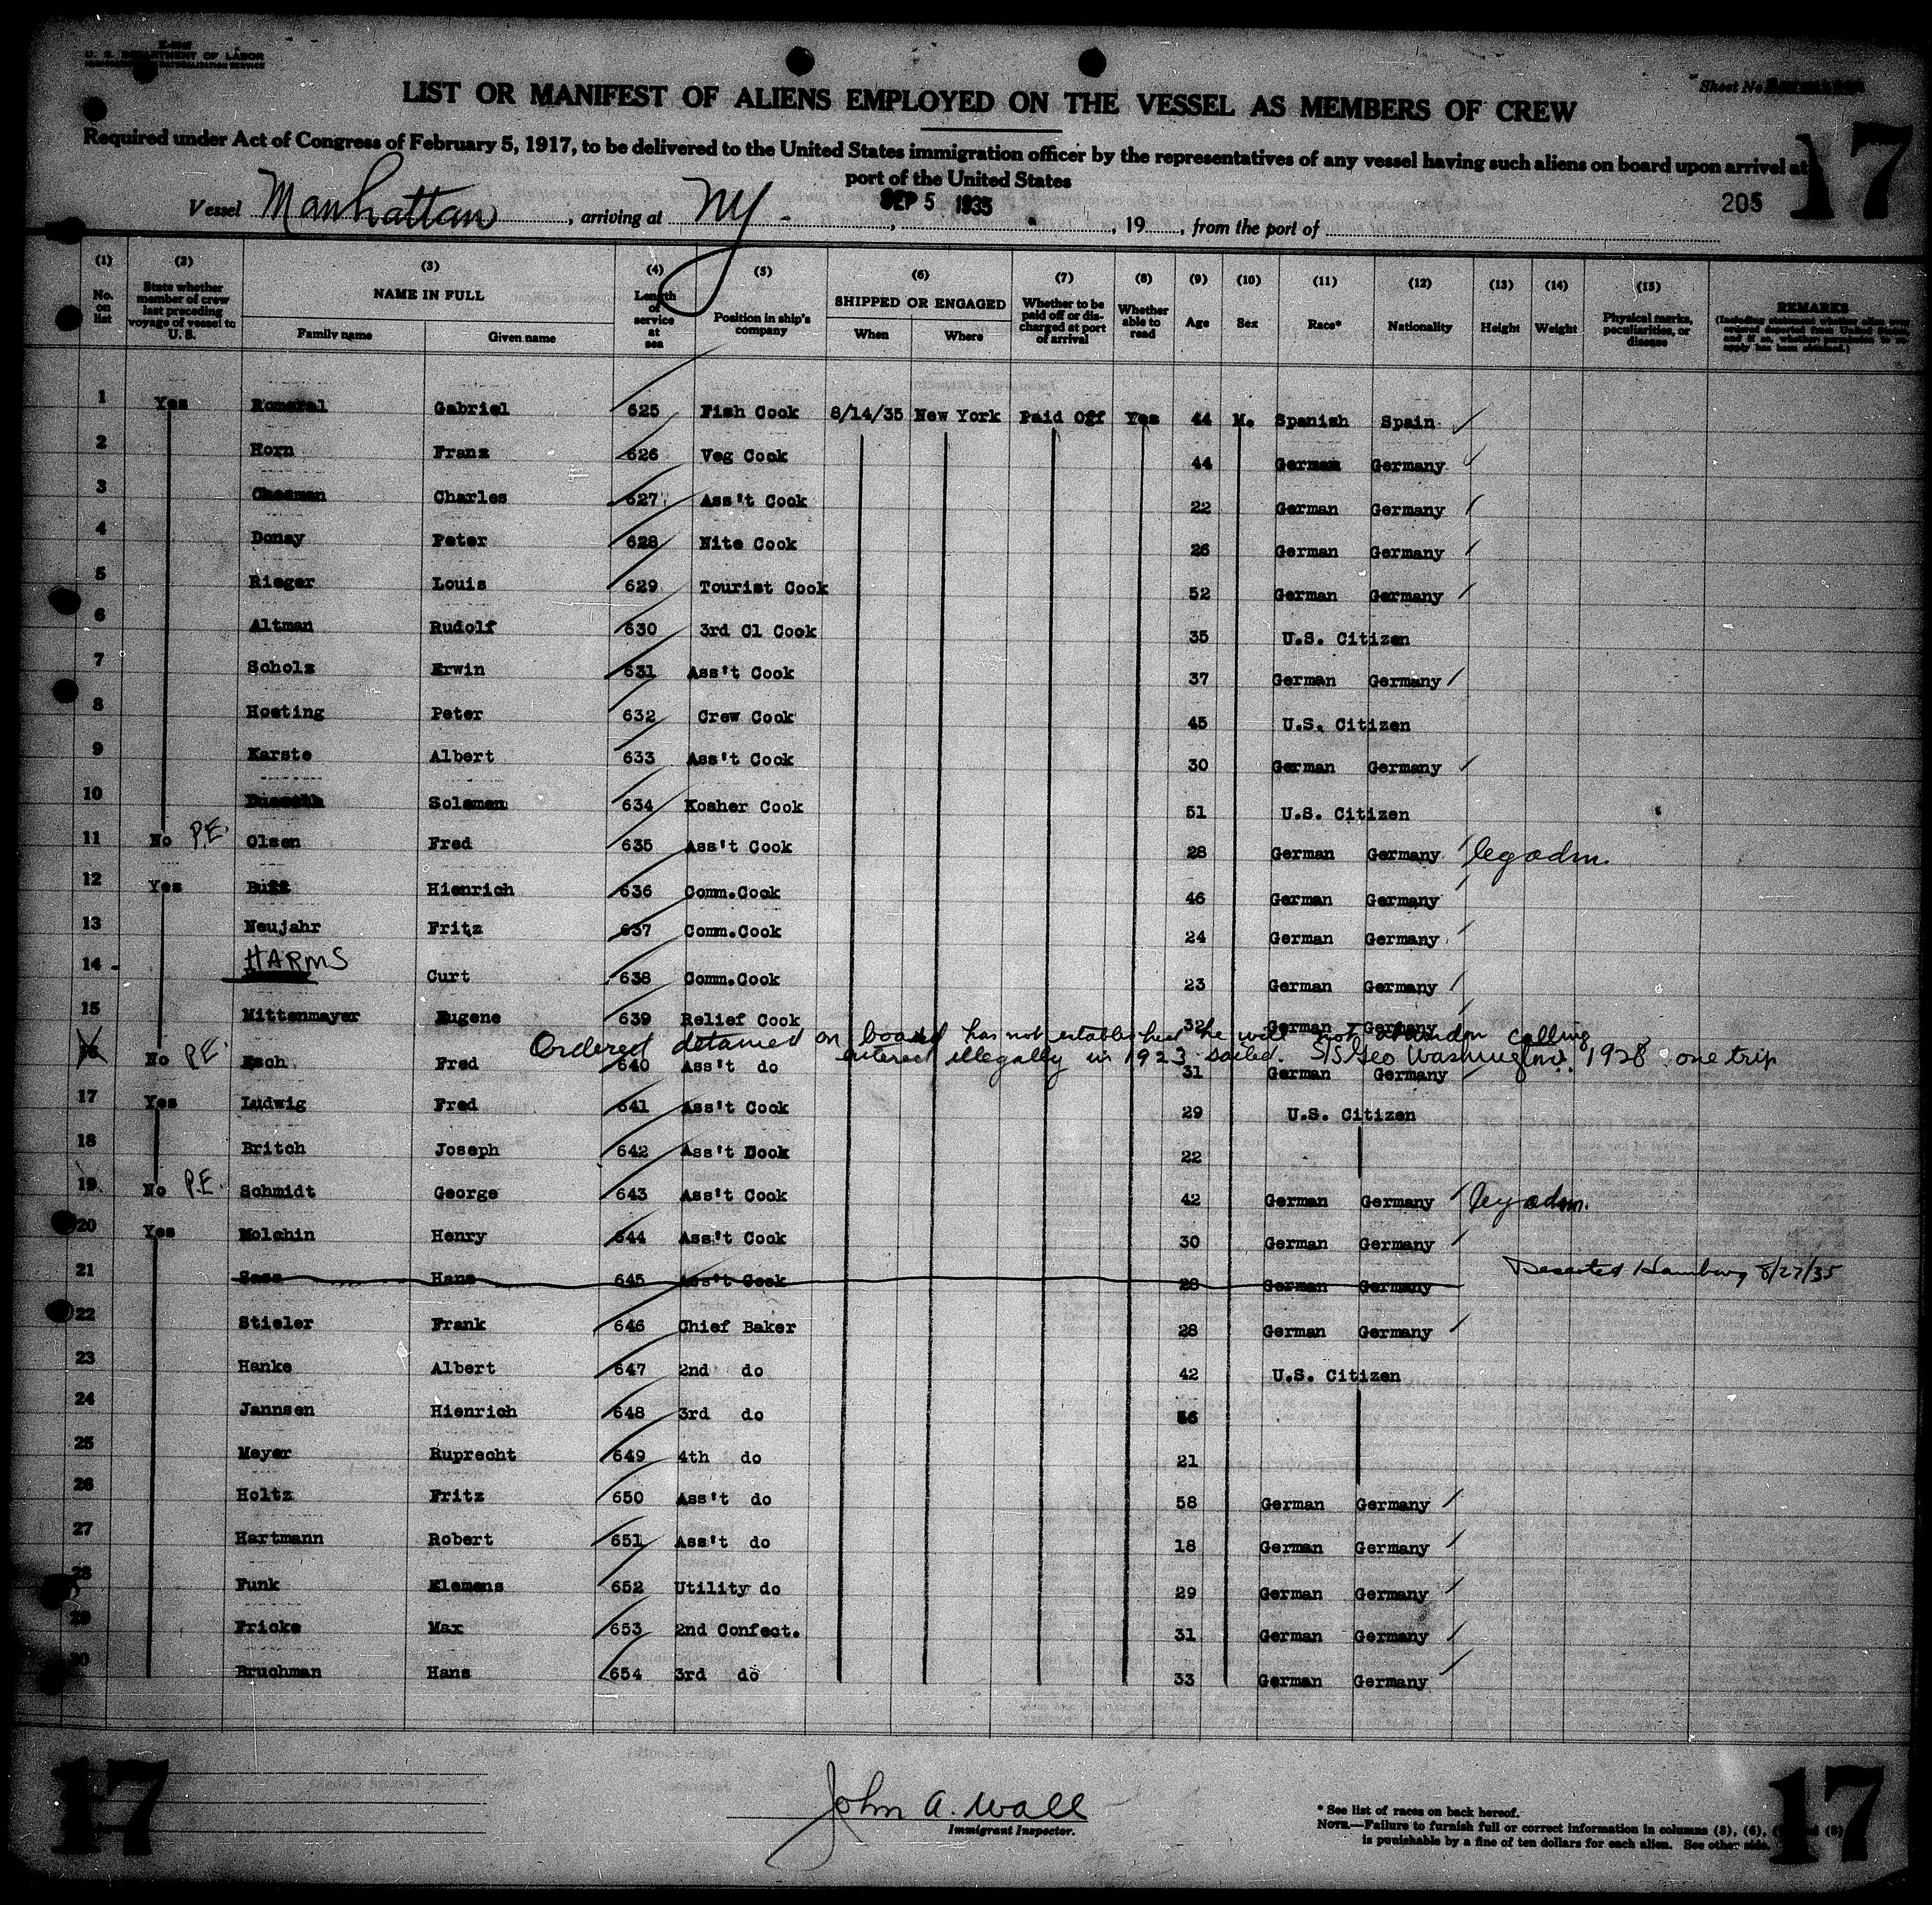 U. S. DEPARTMENT OF LABOR
Sheet No.
LIST OR MANIFEST OF ALIENS EMPLOYED ON THE VESSEL AS MEMBERS OF CREW
Required under Act of Congress of February 5, 1917, to be delivered to the United States immigration officer by the representatives of any vessel having such aliens on board upon arrival at
port of the United States
17
Vessel Manhattan, arriving at NY - SEP 5 1935, 19, from the port of
205
(1) (2) (3) (4) (5) (6) (7) (8) (9) (10) (11) (12) (13) (14) (15)
No. on list
State whether member of crew last preceding voyage of vessel to U. S.
NAME IN FULL
Family name Given name
Length of service at sea
Position in ship's company
SHIPPED OR ENGAGED
When Where
Whether to be paid off or discharged at port of arrival
Whether able to read
Age Sex Race* Nationality Height Weight
Physical marks, peculiarities, or disease
REMARKS
1 Yes Romeral Gabriel 625 Fish Cook 8/14/35 New York Paid Off Yes 44 M. Spanish Spain
2 Horn Franz 626 Veg Cook 44 German Germany
3 Charles 627 Ass't Cook 22 German Germany
4 Donay Peter 628 Nite Cook 26 German Germany
5 Rieger Louis 629 Tourist Cook 52 German Germany
6 Altman Rudolf 630 3rd Cl Cook 35 U.S. Citizen
7 Scholz Erwin 631 Ass't Cook 37 German Germany
8 Hoeting Peter 632 Crew Cook 45 U.S. Citizen
9 Karste Albert 633 Ass't Cook 30 German Germany
10 Soloman 634 Kosher Cook 51 U.S. Citizen
11 No P.E. Olsen Fred 635 Ass't Cook 28 German Germany leg adm.
12 Yes Buff Hienrich 636 Comm.Cook 46 German Germany
13 Neujahr Fritz 637 Comm.Cook 24 German Germany
14 - HARMS Curt 638 Comm.Cook 23 German Germany
15 Mittenmayer Eugene 639 Relief Cook 32 German Germany
Ordered detained on board has not established he will not abandon calling
entered illegally in 1923 sailed. S/S Geo Washington 1928 one trip
16 No P.E. Esch Fred 640 Ass't do 31 German Germany
17 Yes Ludwig Fred 641 Ass't Cook 29 U.S. Citizen
18 Britch Joseph 642 Ass't Dook 22
19 No P.E. Schmidt George 643 Ass't Cook 42 German Germany leg adm.
20 Yes Molchin Henry 644 Ass't Cook 30 German Germany
21 Sass Hans 645 Ass't Cook 28 German Germany Deserted Hamburg 8/27/35
22 Stieler Frank 646 Chief Baker 28 German Germany
23 Hanke Albert 647 2nd do 42 U.S. Citizen
24 Jannsen Hienrich 648 3rd do
25 Meyer Ruprecht 649 4th do 21
26 Holtz Fritz 650 Ass't do 58 German Germany
27 Hartmann Robert 651 Ass't do 18 German Germany
28 Funk Klemens 652 Utility do 29 German Germany
29 Fricke Max 653 2nd Confect. 31 German Germany
30 Bruchman Hans 654 3rd do 33 German Germany
17
John A. Wall
Immigrant Inspector.
* See list of races on back hereof.
NOTE.—Failure to furnish full or correct information in columns (3), (6), (8)
is punishable by a fine of ten dollars for each alien. See other side.
17